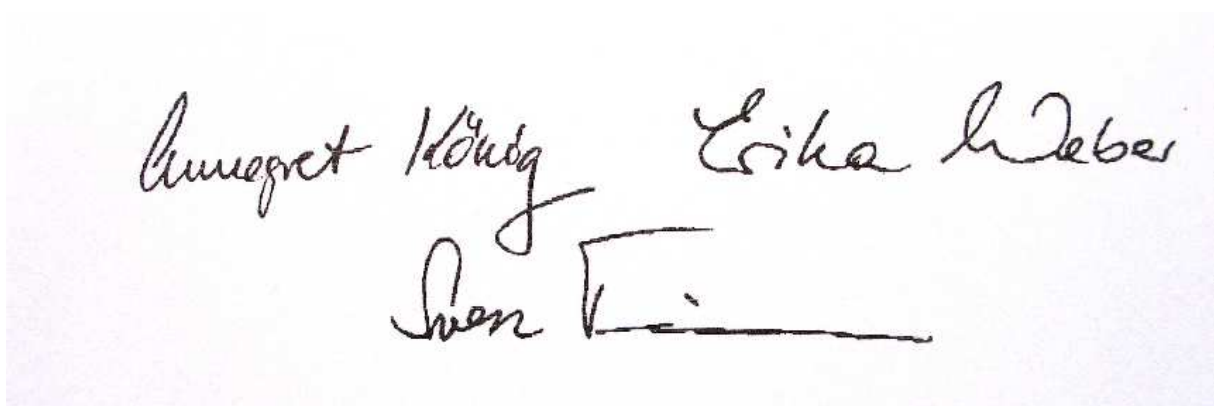 Annegret König Erika Weber
Sven